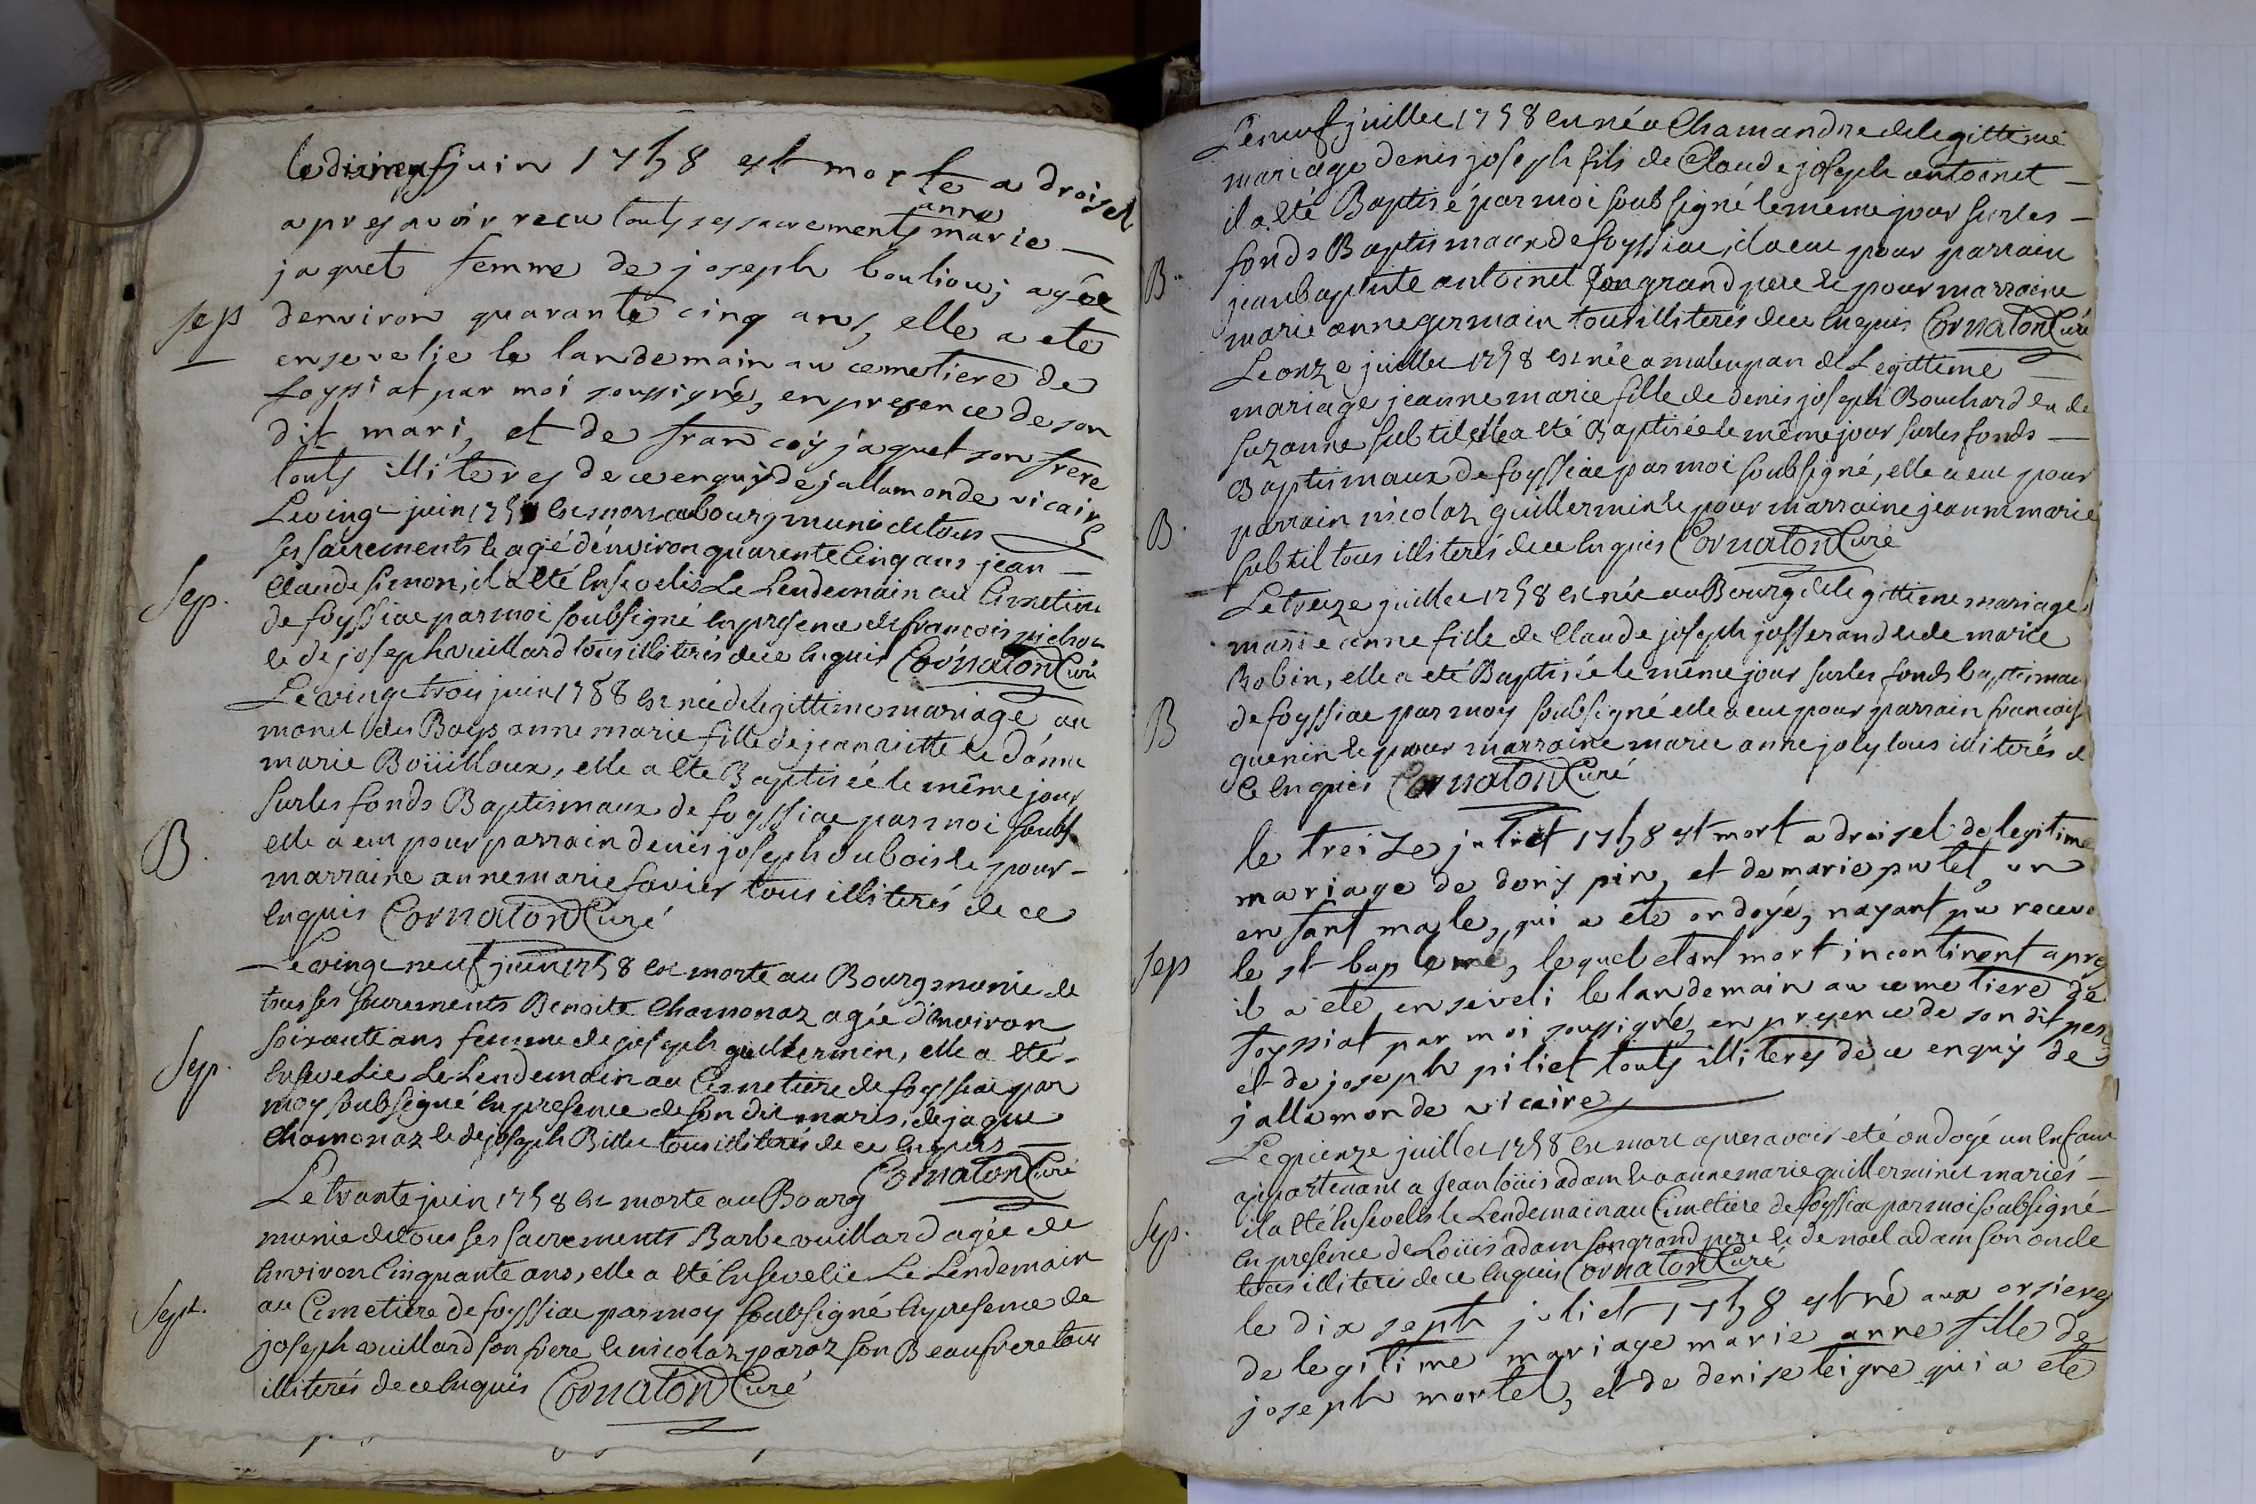 le dixneuf juin 1758 est morte a droisel
apres avoir recu touts ses sacrements anne marie
jaquet femme de joseph bouliouj agée
sep
denviron quarante cinq ans, elle a ete
ensevelie le landemain au cemetiere de
foyssiat par moi soussigné, en presence de son
dit mari, et de francois jaquet son frere
touts illiteres de ce enquis dejallamonde vicaire
Le vingt juin 1758 est mort au bourg muni de tous
ses sacrements et agé d'environ quarente cinq ans jean
Sep.
Claude Simon, il a eté Ensevelis Le Lendemain au Cimetiere
de foyssiac par moi soubsigné En presence de francois michon
et de joseph vuillard tous illiterés de ce Enquis Cornaton Curé
Le vingt trois juin 1758 est née de legittime mariage au
monet des Bays anne marie fille de jean riette et d'anne
marie Boüilloux, elle a eté Baptisée le même jour
sur les fonds Baptismaux de foyssiac par moi soubs.
B.
elle a eut pour parrain denis joseph dubois et pour
marraine anne marie favier tous illiterés de ce
Enquis Cornaton Curé
Le vingt neuf juin 1758 est morte au Bourg munie de
tous ses sacrements Benoite Chamonaz agée d'environ
soixante ans femme de joseph guillermin, elle a eté
Sep.
Ensevelie Le Lendemain au Cimetiere de foyssiac par
moy soubsigné En presence de son dit maris, de jaque
Chamonaz et de joseph Billet tous illiterés de ce Enquis
Cornaton Curé
Le trante juin 1758 est morte au Bourg
munie de tous ses sacrements Barbe vuillard agée de
Environ Cinquante ans, elle a eté Ensevelie Le Lendemain
Sept.
au Cimetiere de foyssiac par moy soubsigné En presence de
joseph vuillard son frere et nicolaz paroz son Beaufrere tous
illiterés de ce Enquis Cornaton Curé
Le neuf juillet 1758 est né a Chamandre de legittime
mariage denis joseph fils de Claude joseph antoinet
il a eté Baptisé par moi soubsigné le même jour sur les
fonds Baptismaux de foyssiac, il a eut pour parrain
B.
jean baptiste antoinet son grand pere et pour marraine
marie anne germain tous illiterés de ce Enquis Cornaton Curé
Le onze juillet 1758 est née a malespan de Legittime
mariage jeanne marie fille de denis joseph Bouchard et de
suzanne subtil elle a eté Baptisée le même jour sur les fonds
Baptismaux de foyssiac par moi soubsigné, elle a eut pour
B.
parrain nicolaz guillermin et pour marraine jeanne marie
subtil tous illiterés de ce Enquis Cornaton Curé
Le treize juillet 1758 est née au Bourg de legittime mariage
marie anne fille de Claude joseph josserand et de marie
Robin, elle a eté Baptisée le même jour sur les fonds baptismau
B
de foyssiac par moy soubsigné elle a eut pour parrain francois
guenin et pour marraine marie anne joly tous illiterés de
Ce Enquis Cornaton Curé
le treize juliet 1758 est mort a droisel de legitime
mariage de denis pin, et de marie putet, un
enfant masle, qui a ete ondoyé, nayant pu recevo
sep
le st bapteme, lequel etant mort incontinent apres
il a ete enseveli le landemain au cemetiere de
foyssiat par moi soussigné, en presence de son dit pere
et de joseph piliet touts illiteres de ce enquis de
jallamonde vicaire
Le quienze juillet 1758 est mort apres avoir eté ondoyé un Enfant
appartenant a Jean loüis adam et a anne marie guillerminet mariés
il a eté Ensevelis le Lendemain au Cimetiere de foyssia par moi soubsigné
Sep.
En presence de Loüis adam son grand pere et de noel adam son oncle
tous illiterés de ce Enquis Cornaton Curé
le dix sept juliet 1758 est né aux orsieres
de legitime mariage marie anne fille de
joseph mortel, et de denise leigne qui a ete